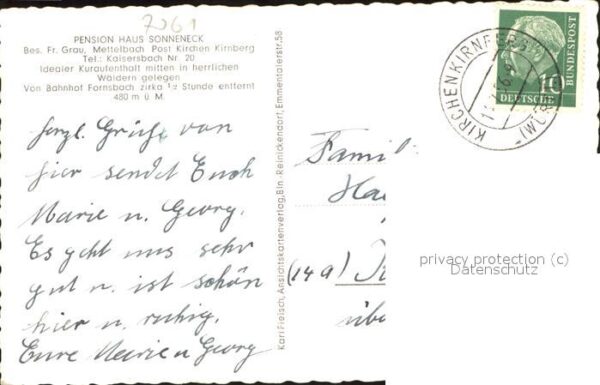 7061
PENSION HAUS SONNENECK
Bes. Fr. Grau, Mettelbach Post Kirchen Kirnberg
Tel.: Kaisersbach Nr. 20
Idealer Kuraufenthalt mitten in herrlichen
Wäldern gelegen
Von Bahnhof Fornsbach zirka ½ Stunde entfernt
480 m ü. M.
herzl. Grüße von
hier sendet Euch
Marie u. Georg.
Es geht uns sehr
gut u. ist schön
hier u. ruhig.
Eure Marie u Georg
Karl Fleisch, Ansichtskartenverlag, Bln. Reinickendorf, Emmentalerstr. 58
KIRCHENKIRNBERG
(WÜRTT)
10
DEUTSCHE
BUNDESPOST
Famil
(14a)
übe
privacy protection (c)
Datenschutz